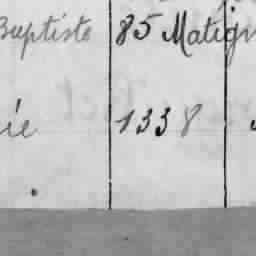 Baptiste 85 Matign
ie 1338